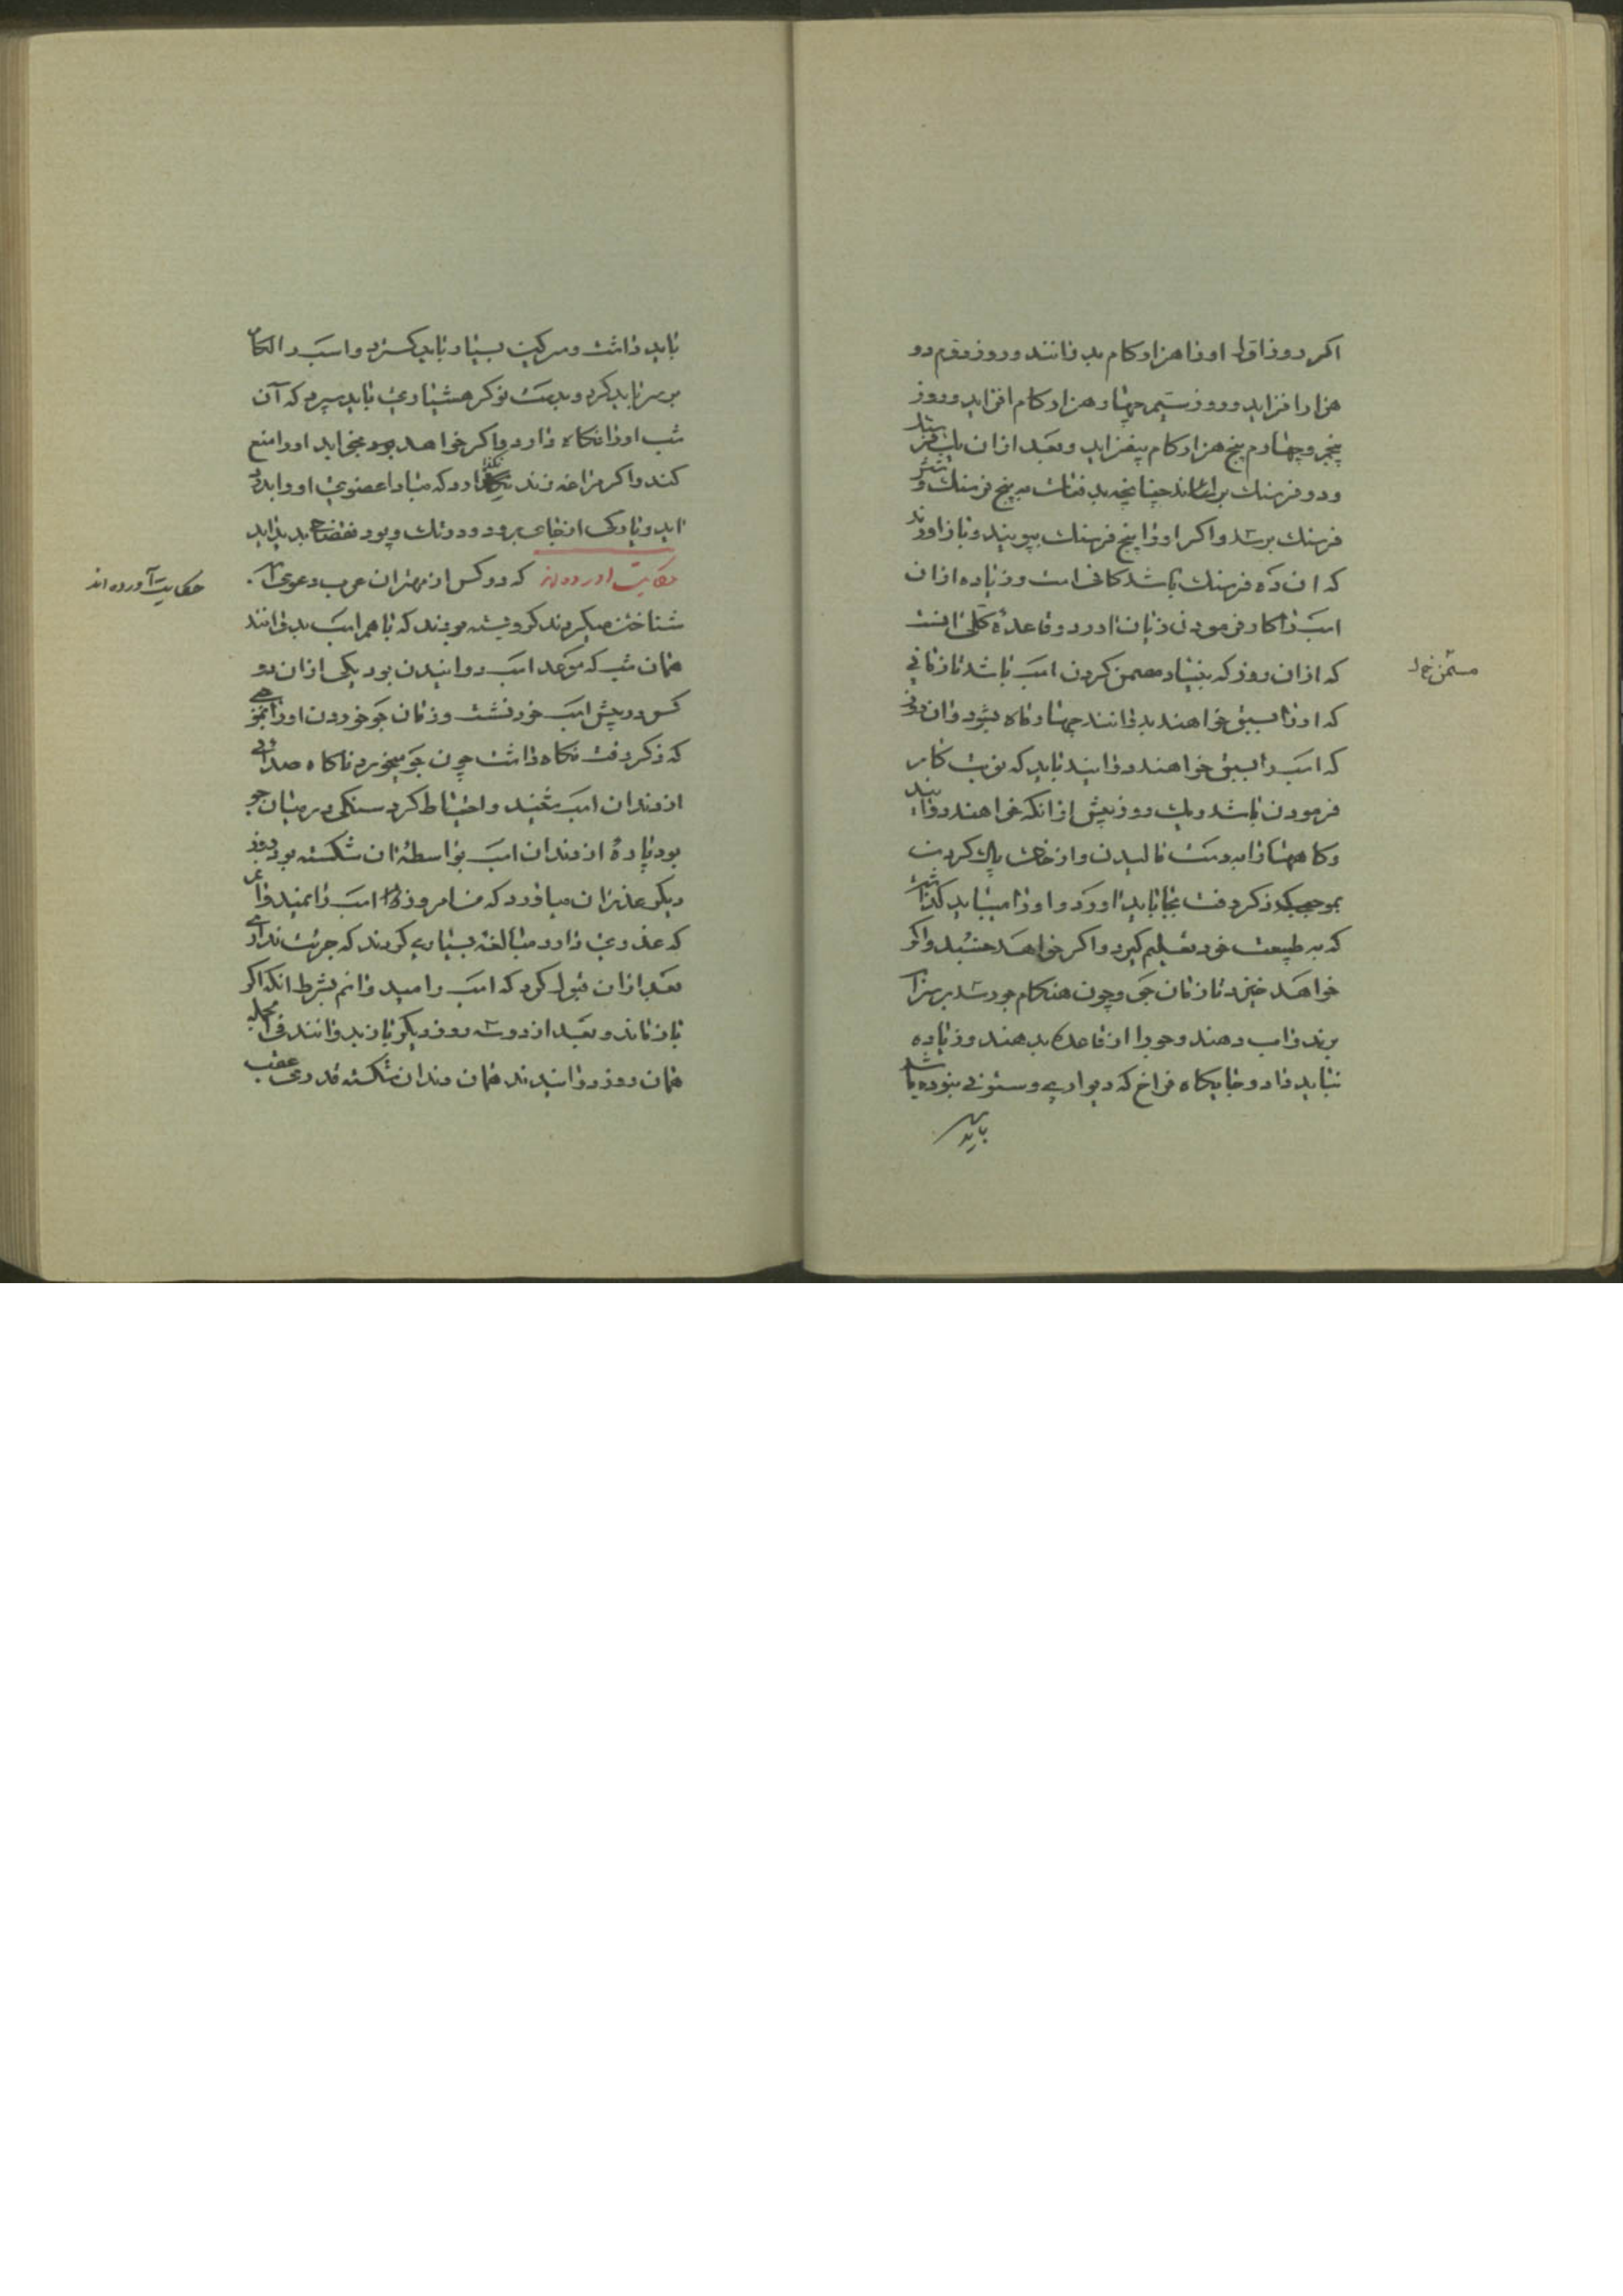 اکر روز اوّل او را هزار کام بدوانند و روز دوّم دو
هزار افزاید و روز سیم چهار هزار کام افزاید و روز
پنجم و چهارم پنج هزار کام بیفزاید و بعد از ان یك فرسنك
و دو فرسنك برساند چنانچه بدفعات به پنج فرسنك و شش
فرسنك برسد و اکر او را پنج فرسنك بپویند و باز اورند
که ان ده فرسنك باشد کافی است و زیاده از ان
اسب را کار فرمودن زیان ارد و قاعدهٔ کلّی انست
که از ان روز که بنیاد مضمن کردن اسب باشد تا زمانی
مستمن خ ل
که او را بسبق خواهند بدوانند چهار ماه بشود و ان روز
که اسب را بسبق خواهند دوانید باید که نوبت کار
فرمودن باشد و یك روز پیش از انکه خواهند دوانید
و کاههارا بدست مالیدن و از خاك پاك کردن
بموجبی که ذکر رفت بجا باید اورد و او را میباید کذاشت
که به طبیعت خود تعلیم کیرد و اکر خواهد خسبد و اکر
خواهد خیزد تا زمان جو و چون هنکام جو رسد بر سر آ
برند و اب دهند و جو را از قاعده بدهند و زیاده
نباید داد و جایکاه فراخ که دیواری و ستونی نبوده باشد
باید
باید داشت و سرکین بسیار باید کسترد و اسب را لکام
بر سر باید کرد و بدست نوکر هشیاری باید سپرد که آن
شب او را نکاه دارد و اکر خواهد بود بخواید او را منع
کند و اکر مراغه زند نکذارد که مبادا عضوی او را بدرد
اید و یا رکی از جای برود و در تك و پو نقضانی پدید اید
حکایت اورده‌اند که دو کس از مهتران عرب دعوی اسب
حکایت آورده اند
شناختن میکردند کرو بسته بودند که باهم اسب بدوانند
همان شب که موعد اسب دوانیدن بود یکی از ان دو
کس در پیش اسب خود نشست و زمان جو خوردن او را بنحوی
که ذکر رفت نکاه داشت چون جو میخورد ناکاه صدائی
از دندان اسب شنید و احتیاط کرد سنکی در میان جو
بود پارهٔ از دندان اسب بواسطه ان شکسته بود روز
دیکر عذر ان میاورد که من امروز اسب را نمیدوانم
که عذری دارد مبالغهٔ بسیاری کردند که جرئت نداری
بعد از ان قبول کرد که اسب را میدوانم بشرط انکه اکر
باز ماند و بعد از دو سه روز دیکر باز بدوانند فی الجمله
همان روز دوانیدند همان دندان شکسته قدری عقب